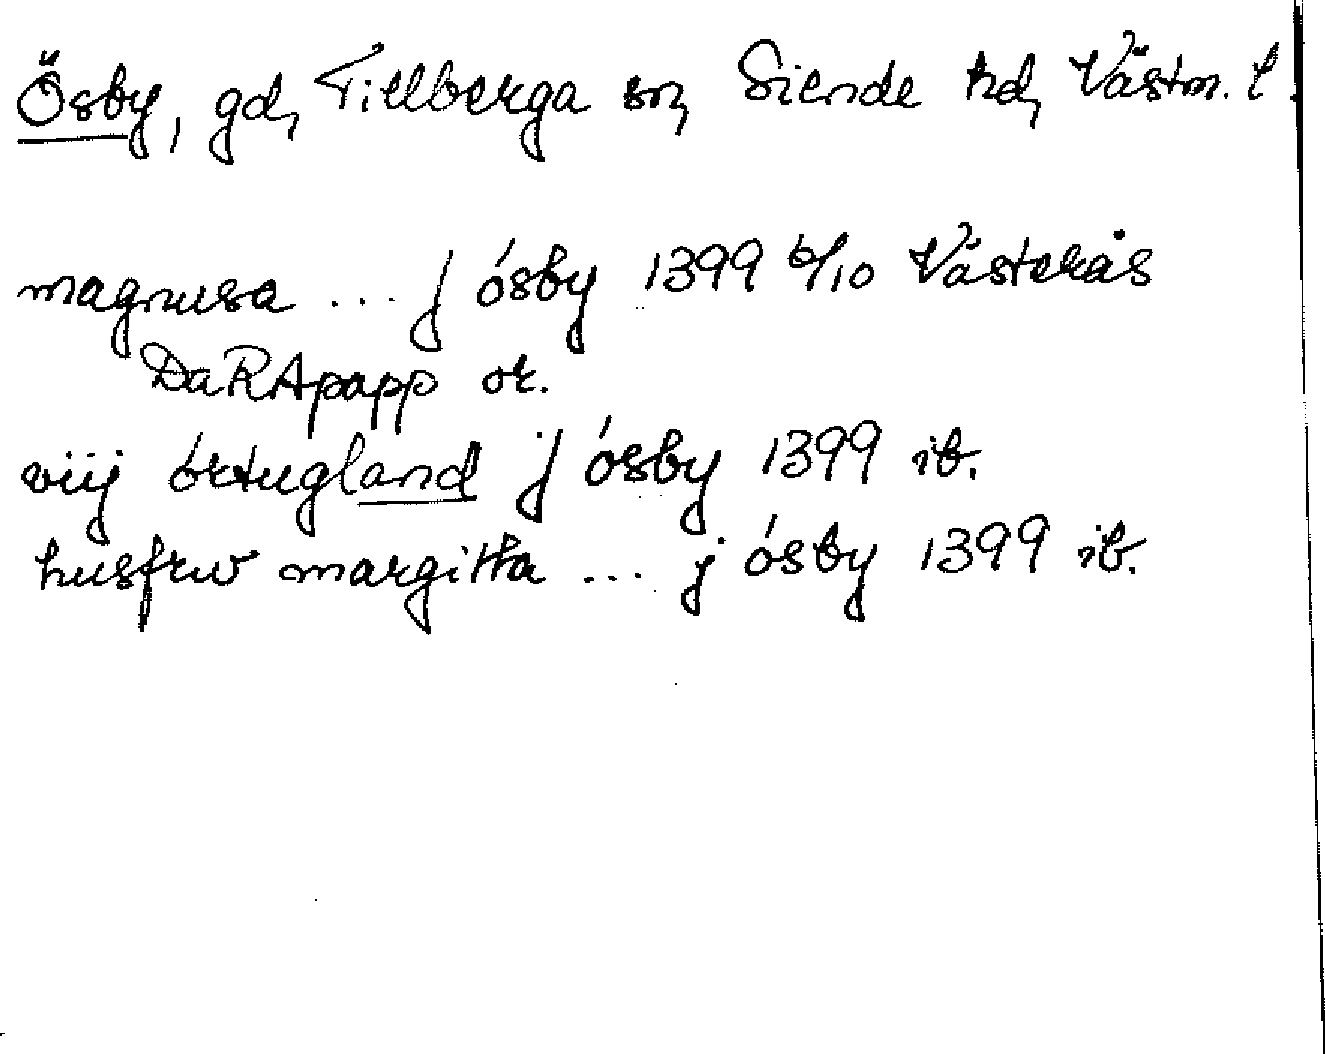 Ösby, gd, Tillberga sn, Siende hd, Västm. l.
magnusa ... j ósby 1399 6/10 Västerås
DaRApapp or.
viij órtugland j ósby 1399 ib.
husfrw margitta ... j ósby 1399 ib.